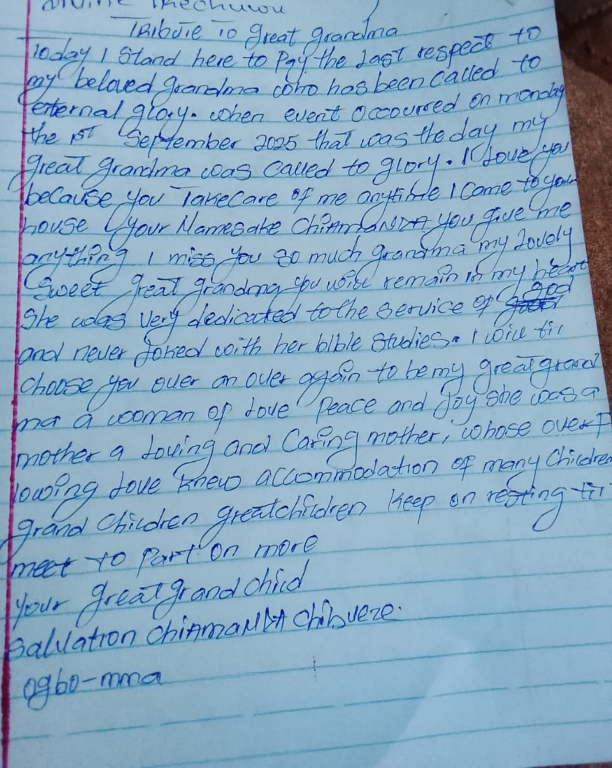 Tribute To great grandma
Today I stand here to pay the last respect to
my beloved grandma who has been called to
eternal glory. when event occoured on monday
the 1st September 2025 that was the day my
great grandma was called to glory. I love you
because you Takecare of me anytime I come to your
house your Namesake ChiAmaNDA you give me
anything I miss you so much grandma my lovely
Sweet great grandma you will remain in my heart
She was very dedicated to the service of god
and never joked with her bible studies. I will til
choose you over an over again to be my great grand
ma a woman of love Peace and Joy she was a
mother a loving and caring mother, whose overf
lowing love knew accommodation of many children
grand children greatchildren keep on resting till
meet to part on more
your great grand child
Salvation ChiAmaNDA Chibueze.
Ogbo-mma